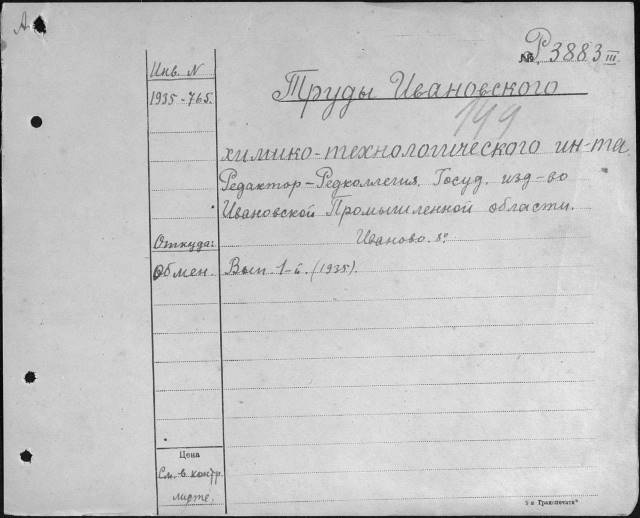 А
№ Р3883 III
Инв. N
1935-765.
Труды Ивановского
199
химико-технологического ин-та.
Редактор-Редколлегия. Госуд. изд-во
Ивановской Промышленной области.
Откуда:
Иваново. 8°
Обмен.
Вып 1-й. (1935).
Цена
См. в контр.
листе.